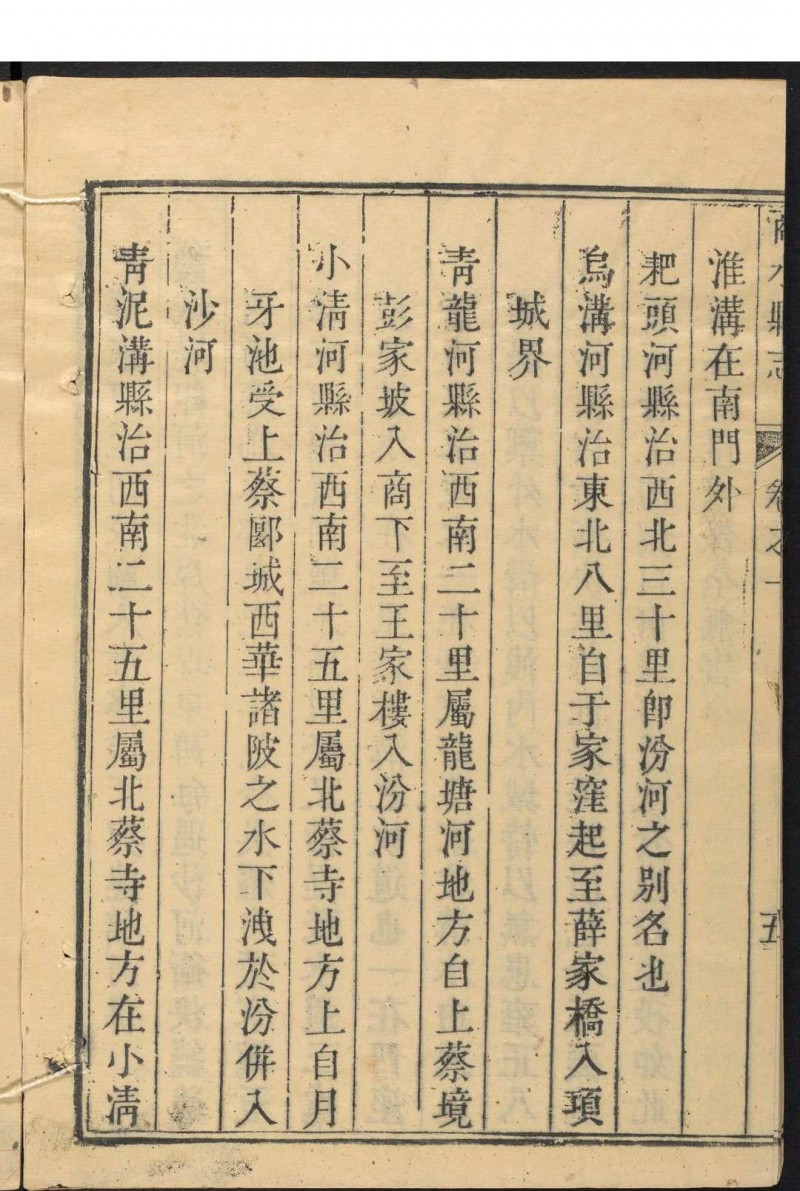 商水縣志
卷之一
五
淮溝在南門外
耙頭河縣治西北三十里卽汾河之别名也
烏溝河縣治東北八里自于家窪起至薛家橋入項
城界
青龍河縣治西南二十里屬龍塘河地方自上蔡境
彭家坡入商下至王家樓入汾河
小清河縣治西南二十五里屬北蔡寺地方上自月
牙池受上蔡郾城西華諸陂之水下洩於汾併入
沙河
青泥溝縣治西南二十五里屬北蔡寺地方在小清